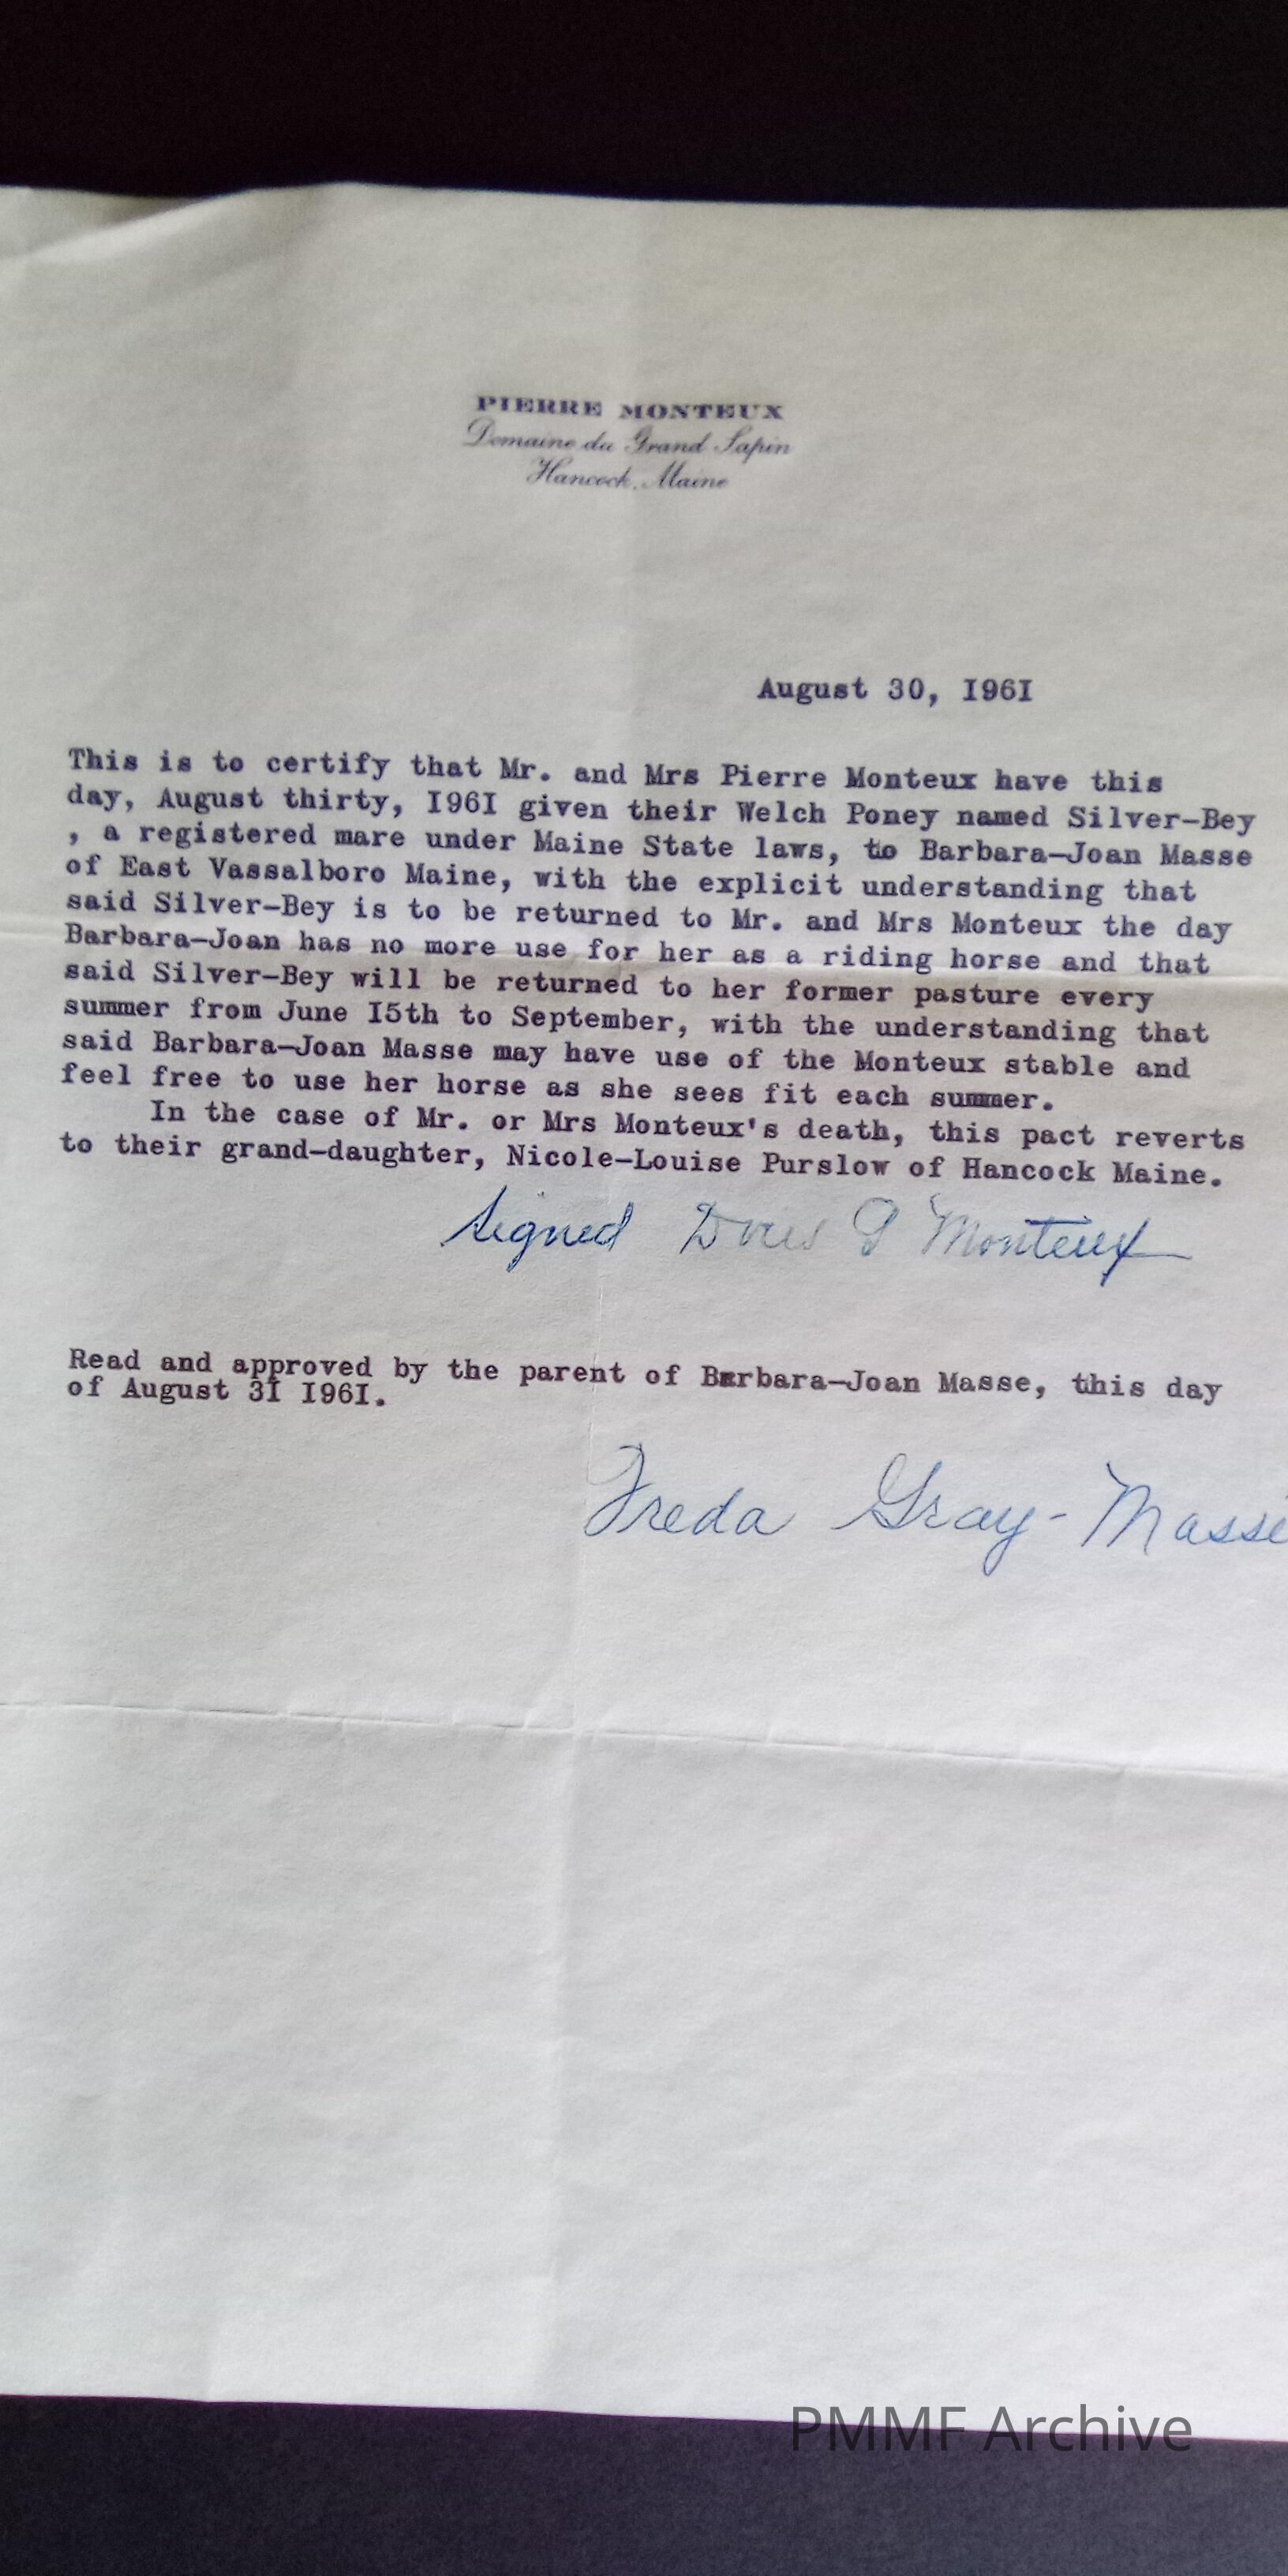 PIERRE MONTEUX
Domaine du Grand Sapin
Hancock, Maine
August 30, I96I
This is to certify that Mr. and Mrs Pierre Monteux have this
day, August thirty, I96I given their Welch Poney named Silver-Bey
, a registered mare under Maine State laws, to Barbara-Joan Masse
of East Vassalboro Maine, with the explicit understanding that
said Silver-Bey is to be returned to Mr. and Mrs Monteux the day
Barbara-Joan has no more use for her as a riding horse and that
said Silver-Bey will be returned to her former pasture every
summer from June I5th to September, with the understanding that
said Barbara-Joan Masse may have use of the Monteux stable and
feel free to use her horse as she sees fit each summer.
In the case of Mr. or Mrs Monteux's death, this pact reverts
to their grand-daughter, Nicole-Louise Purslow of Hancock Maine.
Signed Doris G Monteux
Read and approved by the parent of Barbara-Joan Masse, this day
of August 3I I96I.
Freda Gray-Masse
PMMF Archive